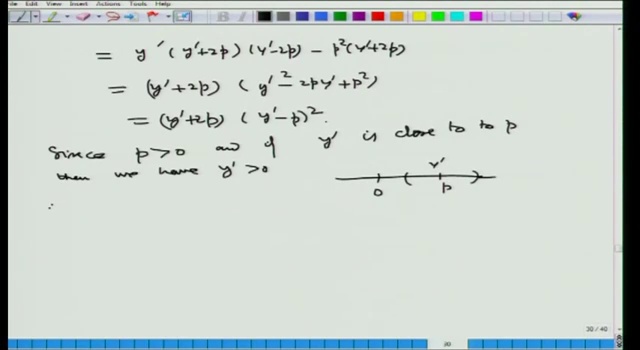 Edit View Insert Actions Tools Help
= y' (y'+2p) (y'-2p) - p²(y'+2p)
= (y'+2p) (y'² - 2py' + p²)
= (y'+2p) (y'-p)².
Since p>0 and if y' is close to to p
then we have y'>0
y'
0 p
30 / 40
30